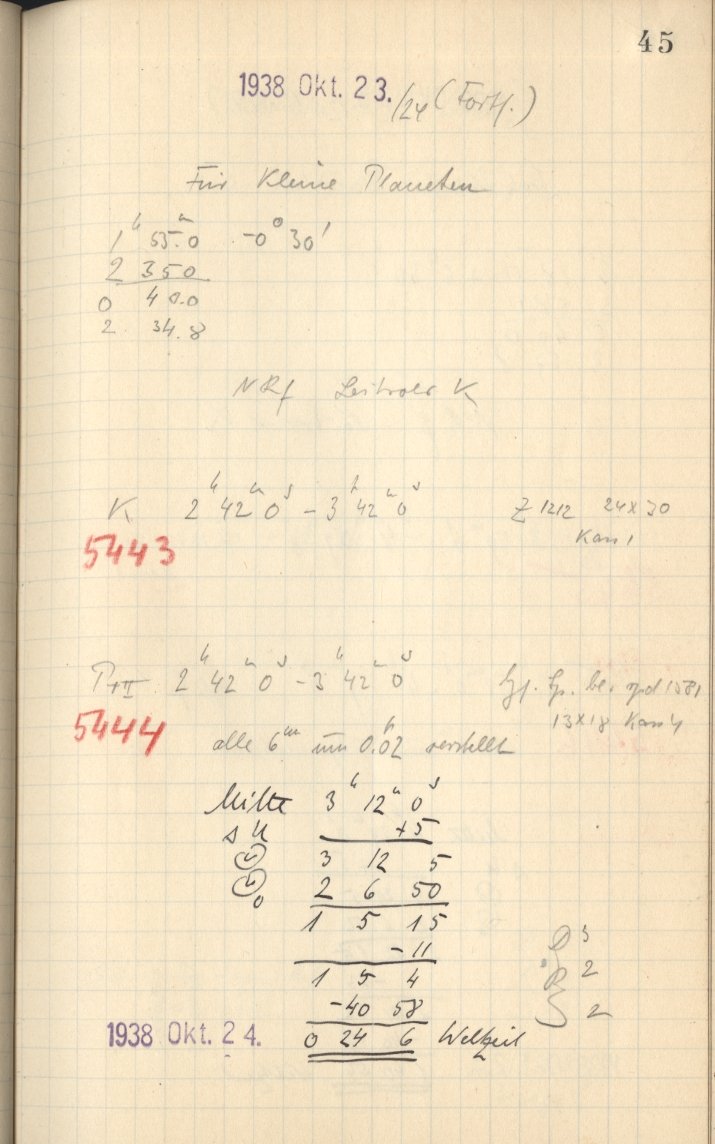 45
1938 Okt. 23./24 (Forts.)
Für Kleine Planeten
1h 55m.0 -0° 30'
2 35 0
0 40.0
2 34.8
NRf K
K 2h 42m 0s - 3h 42m 0s Z 1212 24x30
Kass 1
5443
TrII 2h 42m 0s - 3h 42m 0s 1581
13x18 Kass 4
5444
alle 6m um 0.02 verstellt
Mitte 3h 12m 0s
+5
3 12 5
2 6 50
1 5 15
-11
1 5 4
-40 58
1938 Okt. 24. 0 24 6 Weltzeit
3
2
2